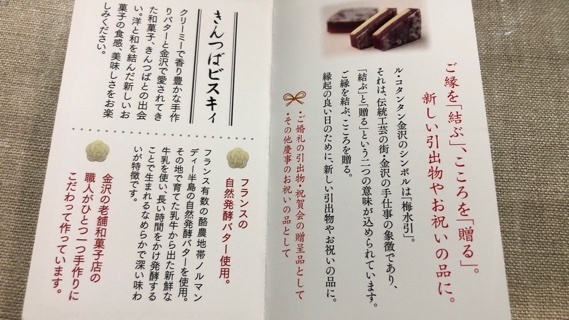 ご縁を「結ぶ」、こころを「贈る」。
新しい引出物やお祝いの品に。
ル・コタンタン金沢のシンボルは「梅水引」。
それは、伝統工芸の街・金沢の手仕事の象徴であり、
「結ぶ」と「贈る」という二つの意味が込められています。
ご縁を結ぶ、こころを贈る。
縁起の良い日のために、新しい引出物やお祝いの品に。
・ご婚礼の引出物・祝賀会の贈呈品として
・その他慶事のお祝いの品として
きんつばビスキィ
クリーミーで香り豊かな手作
りバターと金沢で愛されてき
た和菓子、きんつばとの出会
い。洋と和を結んだ新しいお
菓子の食感、美味しさをお楽
しみください。
フランスの
自然発酵バター使用。
フランス有数の酪農地帯ノルマン
ディー半島の自然発酵バターを使用。
その地で育てた乳牛から出た新鮮な
牛乳を使い、長い時間をかけ発酵する
ことで生まれるなめらかで深い味わ
いが特徴です。
金沢の老舗和菓子店の
職人がひとつ一つ手作りに
こだわって作っています。